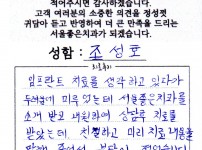 적어주시면 감사하겠습니다.
고객 여러분의 소중한 의견을 정성껏
귀담아 듣고 반영하여 더 큰 만족을 드리는
서울좋은치과가 되겠습니다.
성함 : 조성호
임프란트 치료를 생각하고 있다가
두려움에 미루었는데 서울좋은치과를
소개 받고 내원하여 상담후 치료를
받았는데, 친절하고 미리 치료 내용을